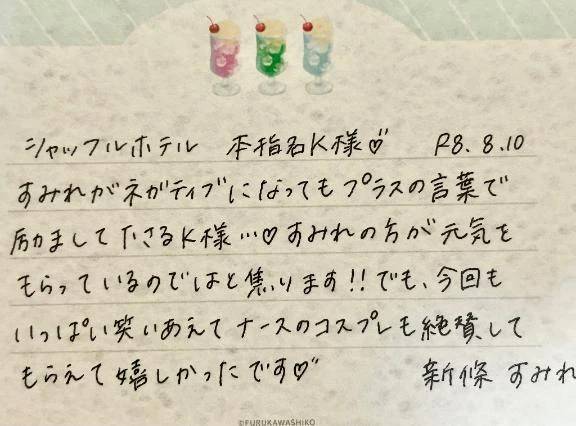 シャッフルホテル 本指名K様♡ R8.8.10
すみれがネガティブになってもプラスの言葉で
励ましてださるK様…♡すみれの方が元気を
もらっているのではと焦ります!!でも、今回も
いっぱい笑いあえてナースのコスプレも絶賛して
もらえて嬉しかったです♡
新條 すみれ
©FURUKAWASHIKO